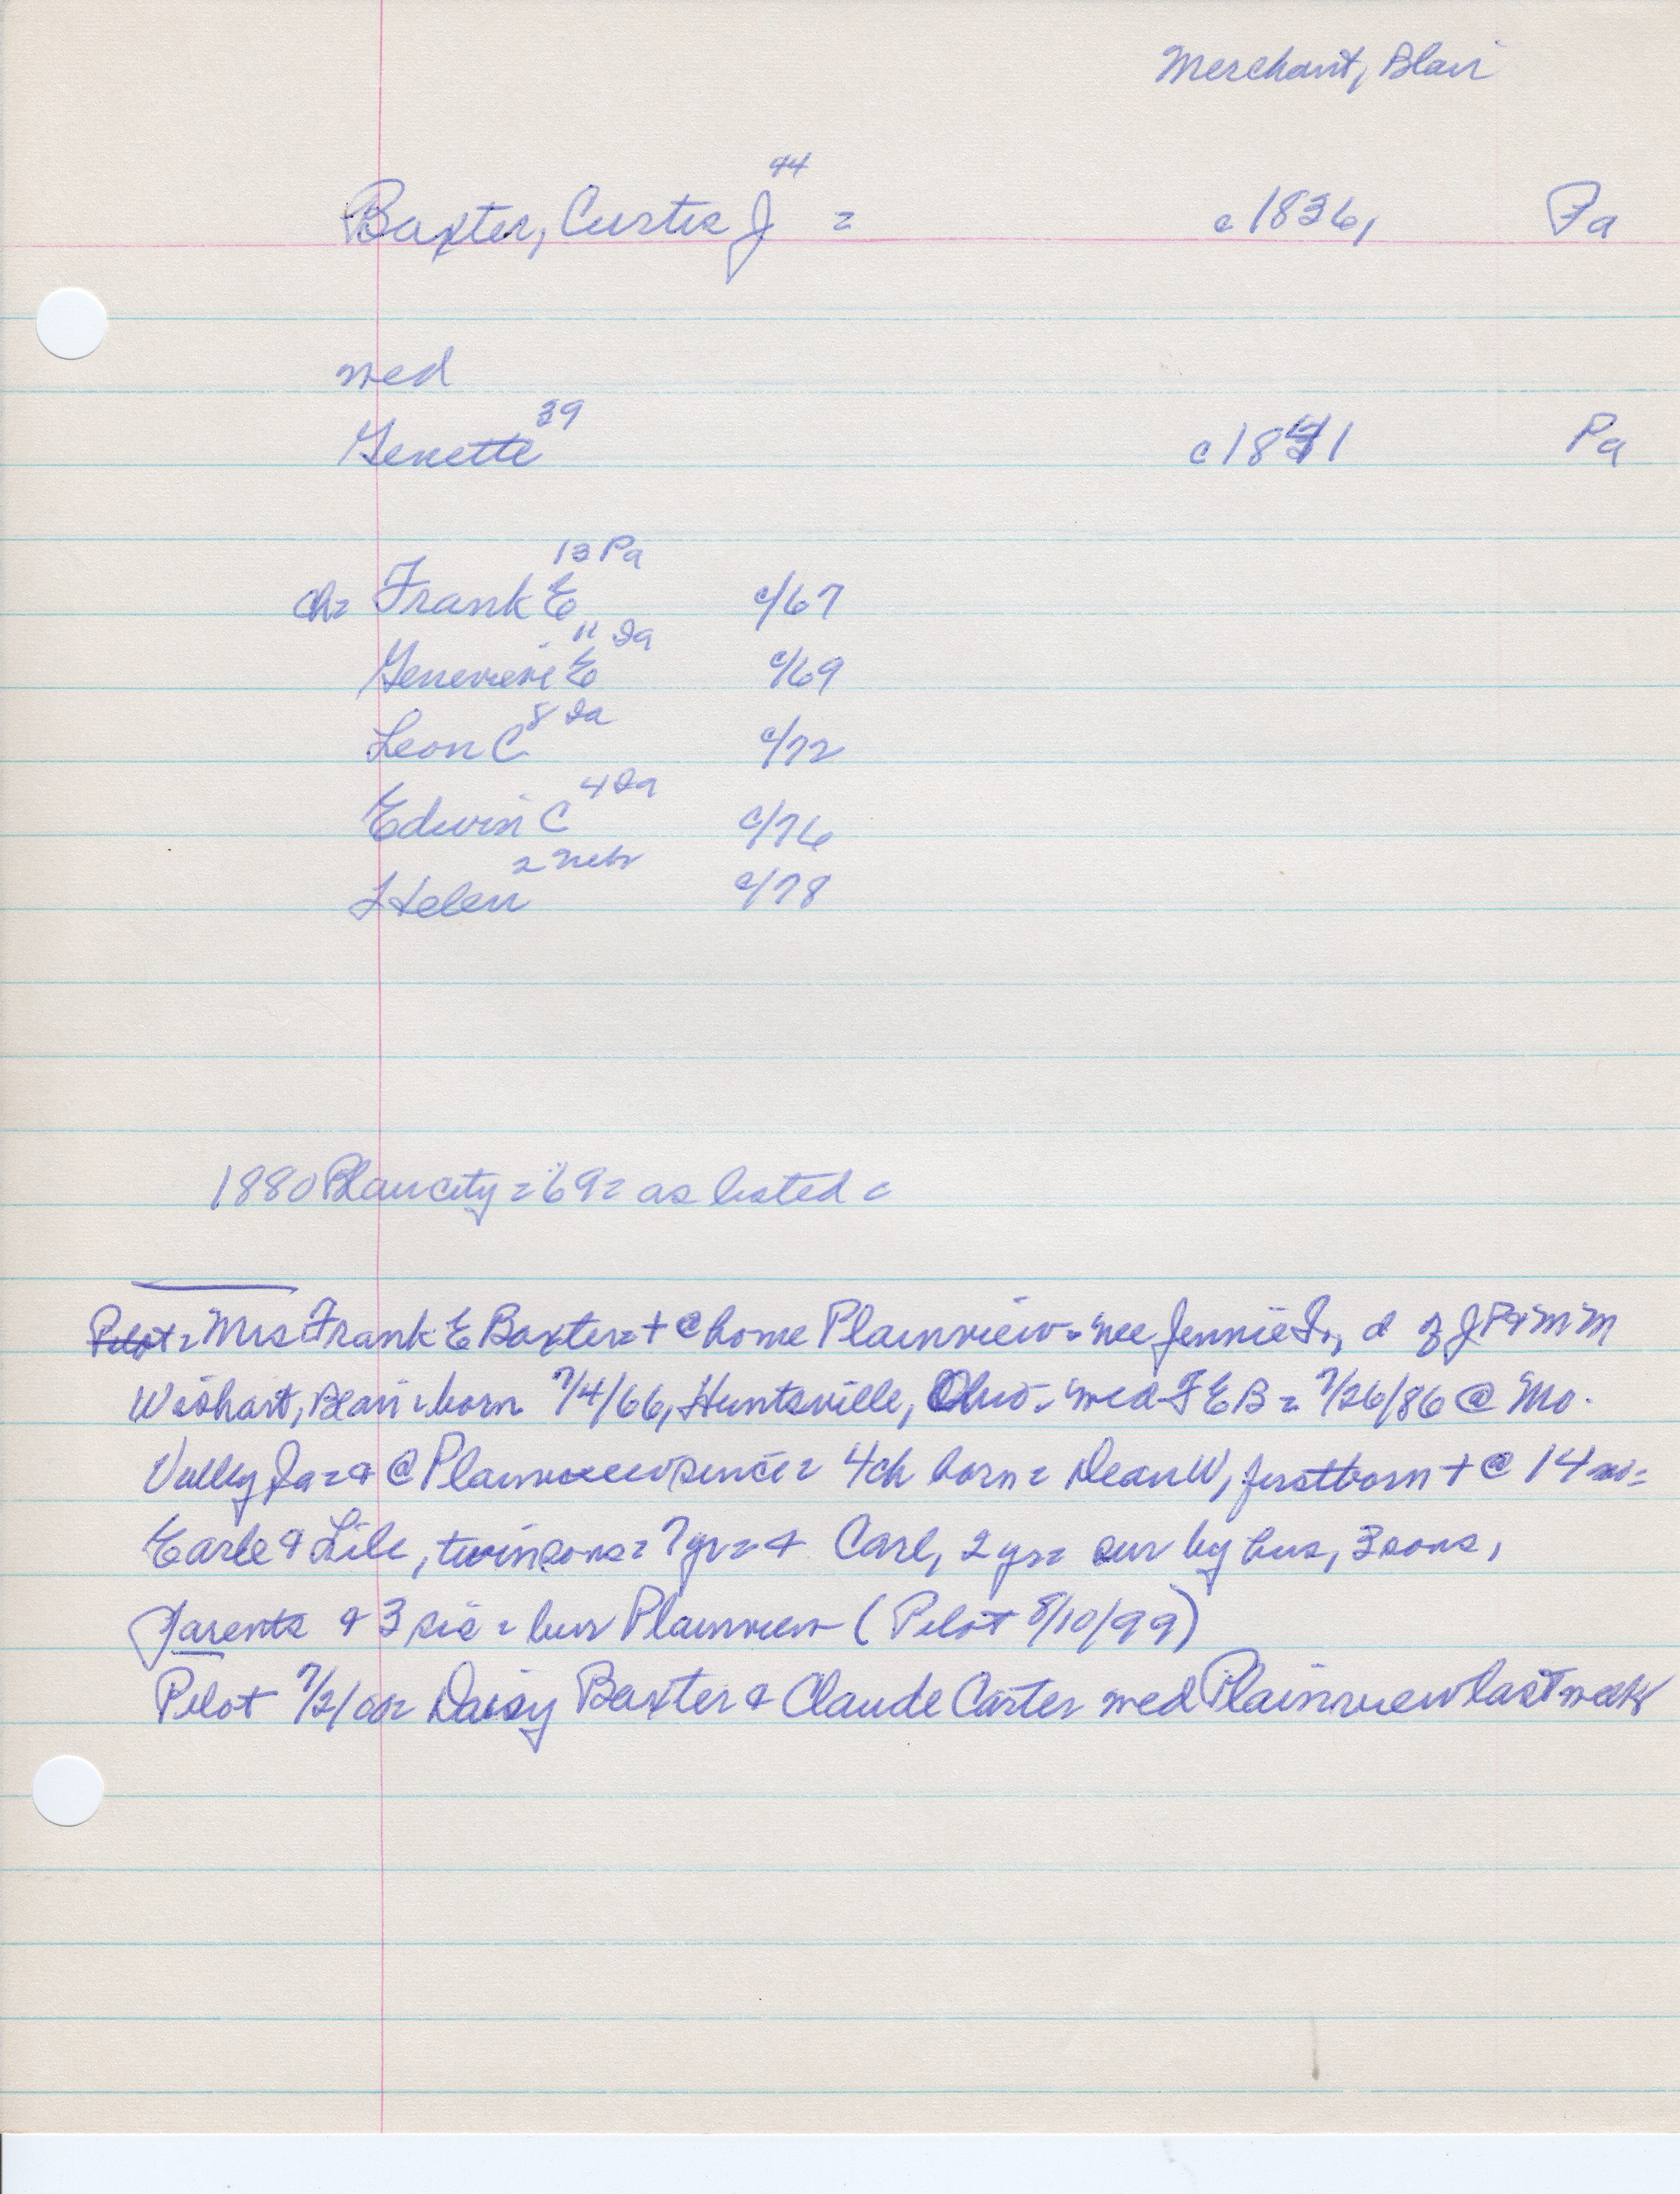 Merchant, Blair
44
Baxter, Curtis J = c 1836, Pa
med
39
Genette c 1841 Pa
13 Pa
ch= Frank E c/67
11 Ia
Genevieve E c/69
8 Ia
Leon C c/72
4 Ia
Edwin C c/76
2 Nebr
Helen c/78
1880 Blair city = 69 = as listed =
Pilot = Mrs Frank E Baxter = + @ home Plainview = nee Jennie I, d of J P & M M
Wishart, Blair = born 7/4/66, Huntsville, Ohio = med F E B = 7/26/86 @ Mo.
Valley Ia = & @ Plainview since = 4 ch born = Dean W, firstborn + @ 14 mo =
Earle & Lile, twin sons = 7 yr = & Carl, 2 yr = sur by hus, 3 sons,
parents & 3 sis = bur Plainview (Pilot 8/10/99)
Pilot 7/2/00 = Daisy Baxter & Claude Carter med Plainview last week